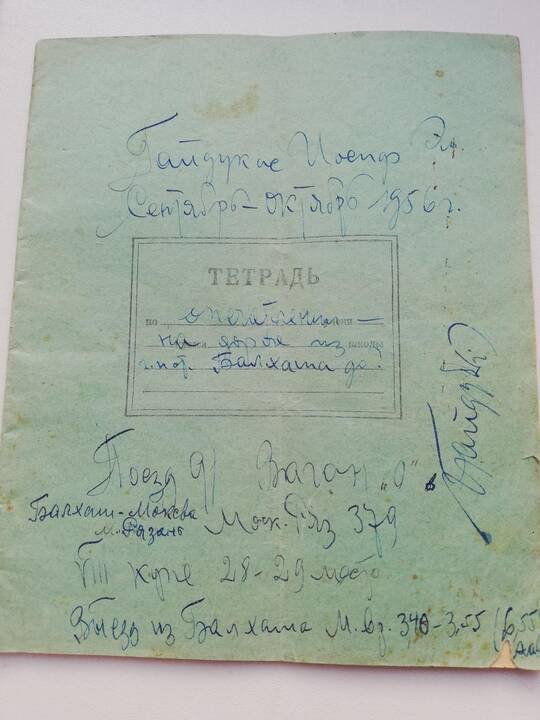 Гайдукас Иосиф
Сентябрь-октябрь 1956 г.
ТЕТРАДЬ
по
на дороге из школы
Балхаша до:
Поезд 91 Вагон "0"
Балхаш-Москва
м. Рязань Моск. Ряз 379
VIII купе 28-29 место
Выезд из Балхаша М. вр. 340-3,55 (6,55